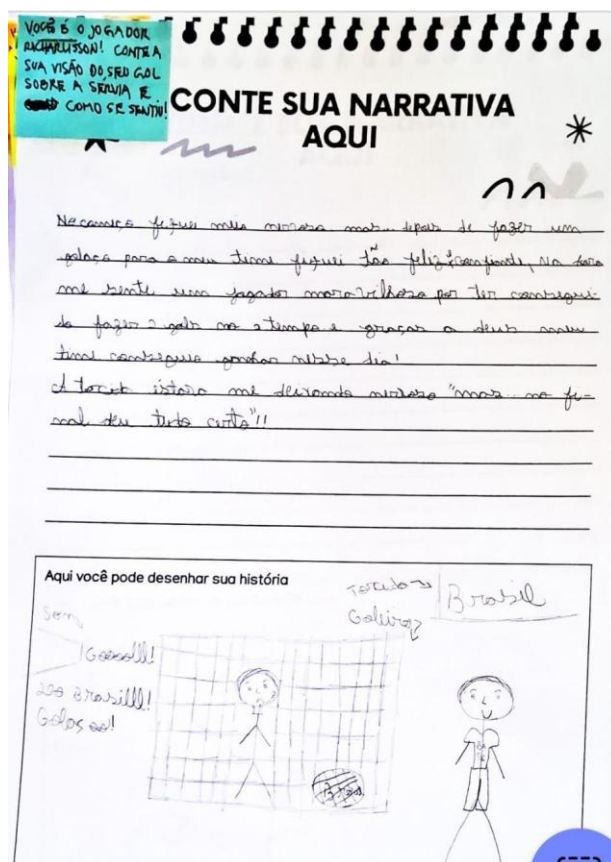 VOCÊ É O JOGADOR
RICHARLISSON! CONTE A
SUA VISÃO DO SEU GOL
SOBRE A SERVIA E
COMO SE SENTIU!
CONTE SUA NARRATIVA
AQUI
No começo fiquei meio nervoso mas... depois de fazer um
golaço para o meu time fiquei tão feliz, confiante, na hora
me senti um jogador maravilhoso por ter consegui-
do fazer 2 gols no 2 tempo e graças a deus meu
time conseguiu ganhar nesse dia!
A torcida estava me deixando nervoso "mas... no fi-
nal deu tudo certo"!!
Aqui você pode desenhar sua história
Torcedores
Brasil
Goleiro
Som
Gooolll!
Brasilll!